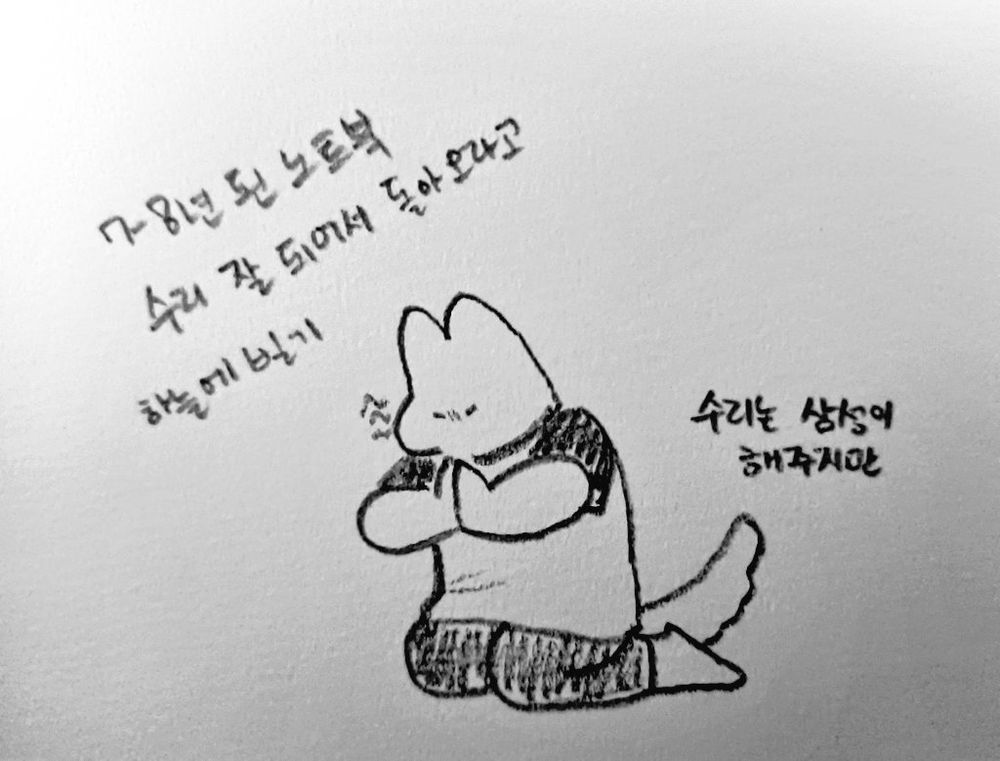 7-8년 된 노트북
수리 잘 되어서 돌아오라고
하늘에 빌기
수리는 삼성이
해주지만